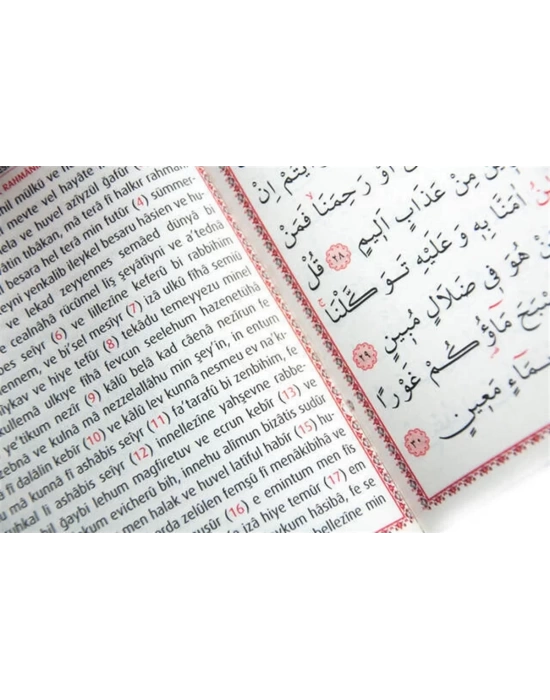 RAHMANI
mil mülkü ve
mevte vel hayâte
ve huvel azîyzül ğafûr
tıbâkan, mâ terâ fî halkır rahmân
besara hel terâ min futûr (4) sümmer-
yenkalib ileykel besaru hâsien ve hu-
ve lekad zeyyennes semâed dünyâ bi
cealnâhâ rücûmel liş şeyâtîyni ve a'tednâ
seîyr (6) ve lillezîne keferû bi rabbihim
ennem, ve bi'sel mesîyr (7) izâ ulkû fîhâ semiû
ve hiye tefûr (8) tekâdu temeyyezu minel
kullemâ ulkıye fîhâ fevcun seelehum hazenetühâ
e'tikum nezîr (9) kâlû belâ kad câenâ nezîrun fe
zebnâ ve kulnâ mâ nezzelallâhu min şey'in, in entum
fî dalâlin kebîr (10) ve kâlû lev kunnâ nesmeu ev na'k-
mâ kunnâ fî ashâbis seîyr (11) fa'tarafû bi zenbihim, fe
uhkal li ashâbis seîyr (12) innellezîne yahşevne rabbe-
bil ğaybi lehum mağfiretuv ve ecrun kebîr (13) ve
kum evicherû bih, innehu alîmun bizâtis sudûr
men halak ve huvel latîful habîr (15) hu-
arda zelûlen femşû fî menâkibihâ ve
nuşûr (16) e emintum men fis
izâ hiye temûr (17) em
aykum hâsibâ, fe se
bellezîne min
اِنْ
اَوْ رَحِمَنَا فَمَنْ
مِنْ عَذَابٍ اَلِيمٍ ٢٨ قُلْ
اٰمَنَّا بِهِ وَ عَلَيْهِ تَوَكَّلْنَا
هُوَ فِي ضَلَالٍ مُبِينٍ ٢٩
مَاؤُكُمْ غَوْرًا
مَعِينٍ ٣٠